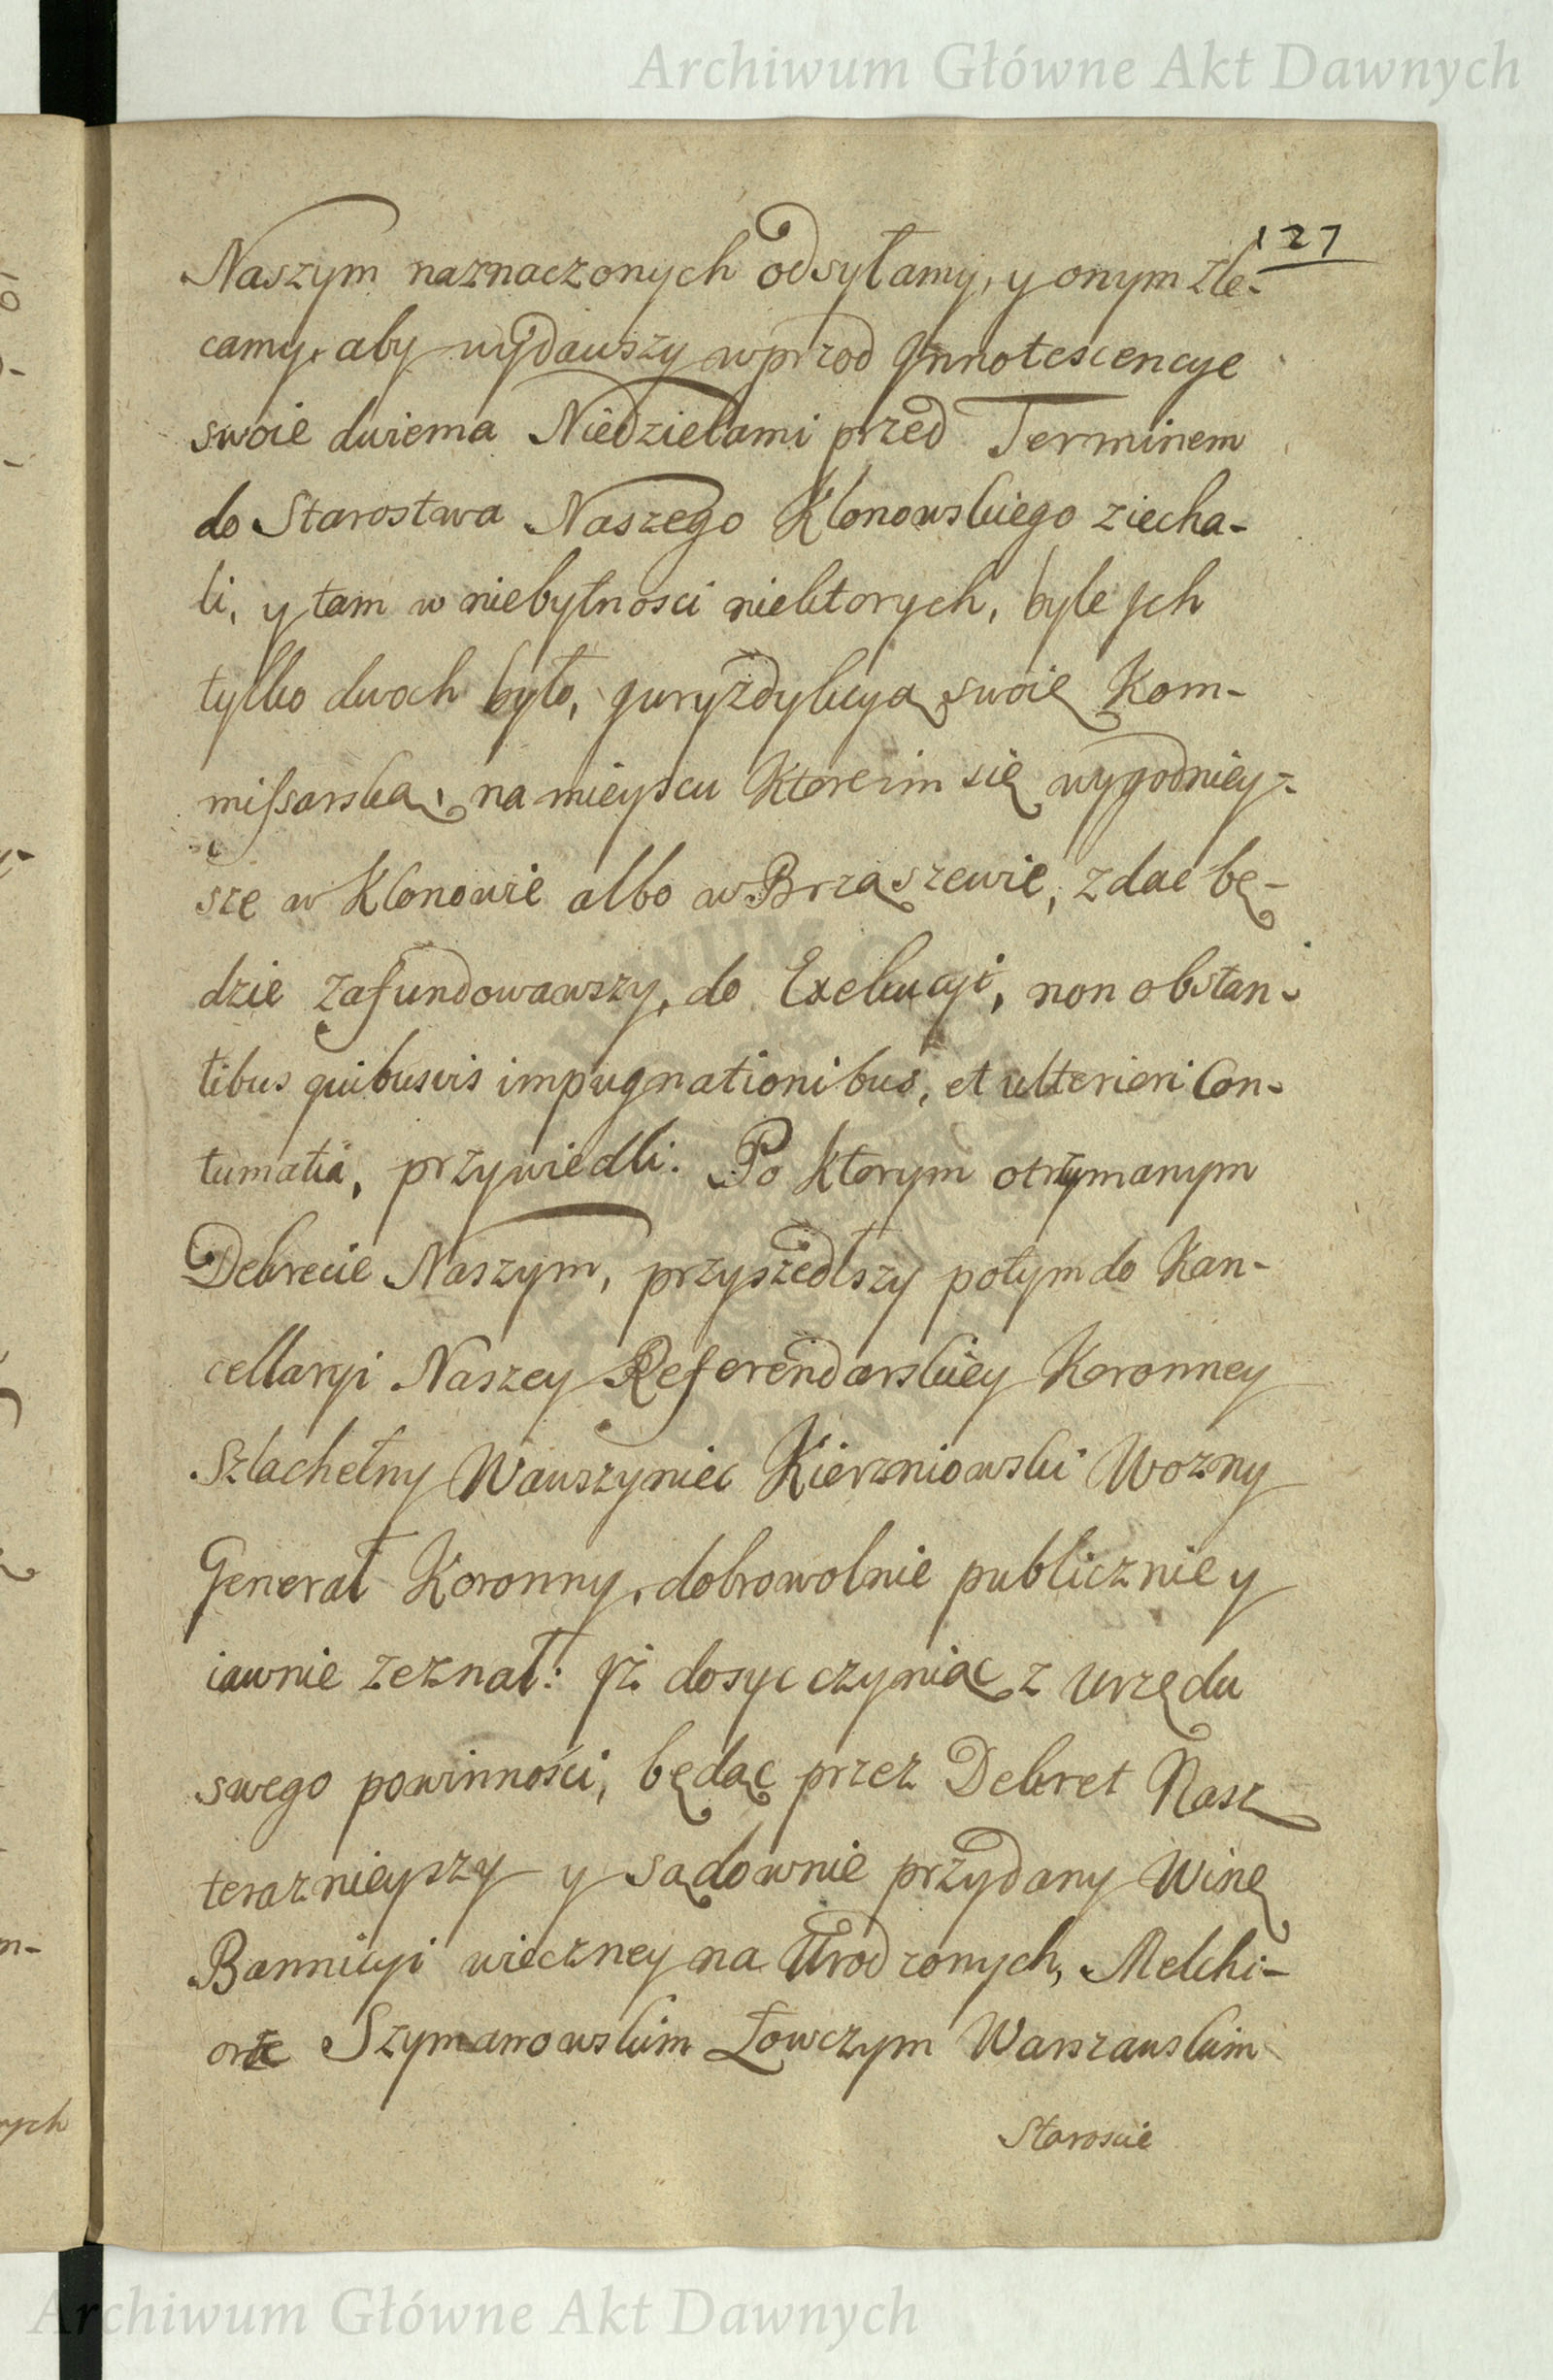 Archiwum Główne Akt Dawnych
127
Naszym naznaczonych odsyłamy, y onym zle-
camy, aby wydawszy wprzod Jnnotescencye
swoie dwiema Niedzielami przed Terminem
do Starostwa Naszego Klonowskiego ziecha-
li, y tam w niebytnosci niektorych, byle Jch
tylko dwoch było, Juryzdykcyą swoię Kom-
missarską, na mieyscu ktore im się wygodniey-
sze w Klonowie albo w Brząszewie, zdac bę-
dzie zafundowawszy, do Exekucyi, non obstan-
tibus quibusvis impugnationibus, et ulteriori Con-
tumatia, przywiedli. Po ktorym otrzymanym
Dekrecie Naszym, przyszedłszy potym do Kan-
cellaryi Naszey Referendarskiey Koronney
Szlachetny Wawrzyniec Kierzniowski Wozny
Generał Koronny, dobrowolnie publicznie y
iawnie zeznał: Jż dosyc czyniąc z urzędu
swego powinności, będąc przez Dekret Nasz
teraznieyszy y sądownie przydany Winę
Bannicyi wieczney na Urodzonych, Melchi-
orze Szymanowskim Łowczym Warszawskim
Staroscie
Archiwum Główne Akt Dawnych